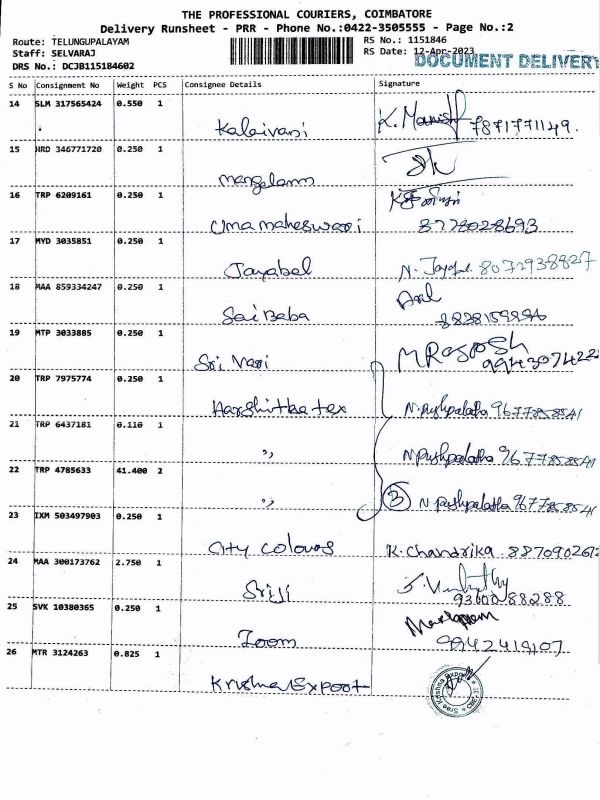 THE PROFESSIONAL COURIERS, COIMBATORE
Delivery Runsheet - PRR - Phone No.:0422-3505555 - Page No.:2
Route: TELUNGUPALAYAM RS No.: 1151846
Staff: SELVARAJ RS Date: 12-Apr-2023
DOCUMENT DELIVERY
DRS No.: DCJB115184602
S No Consignment No Weight PCS Consignee Details Signature
14 SLM 317565424 0.550 1
Kalaivani K. Manish 7871771149.
15 HRD 346771720 0.250 1
mangalam
16 TRP 6209161 0.250 1
Uma maheswari 8778028693
17 MYD 3035851 0.250 1
Jayabal N. Jayapal 8072938827
18 MAA 859334247 0.250 1
Sai Baba 8838159896
19 MTP 3033885 0.250 1
Sri Vari M RAJESH 994307422
20 TRP 7975774 0.250 1
Harshitha tex N.Pushpalatha 9677858541
21 TRP 6437181 0.110 1
" N Pushpalatha 9677858541
22 TRP 4785633 41.400 2
" 3 N Pushpalatha 9677858541
23 IXM 503497903 0.250 1
City Colours K. Chandrika 887090261
24 MAA 300173762 2.750 1
Sriji 9300088288
25 SVK 10380365 0.250 1
Zoom 9942419107
26 MTR 3124263 0.825 1
Krishna Export
Sree Krishna Exports